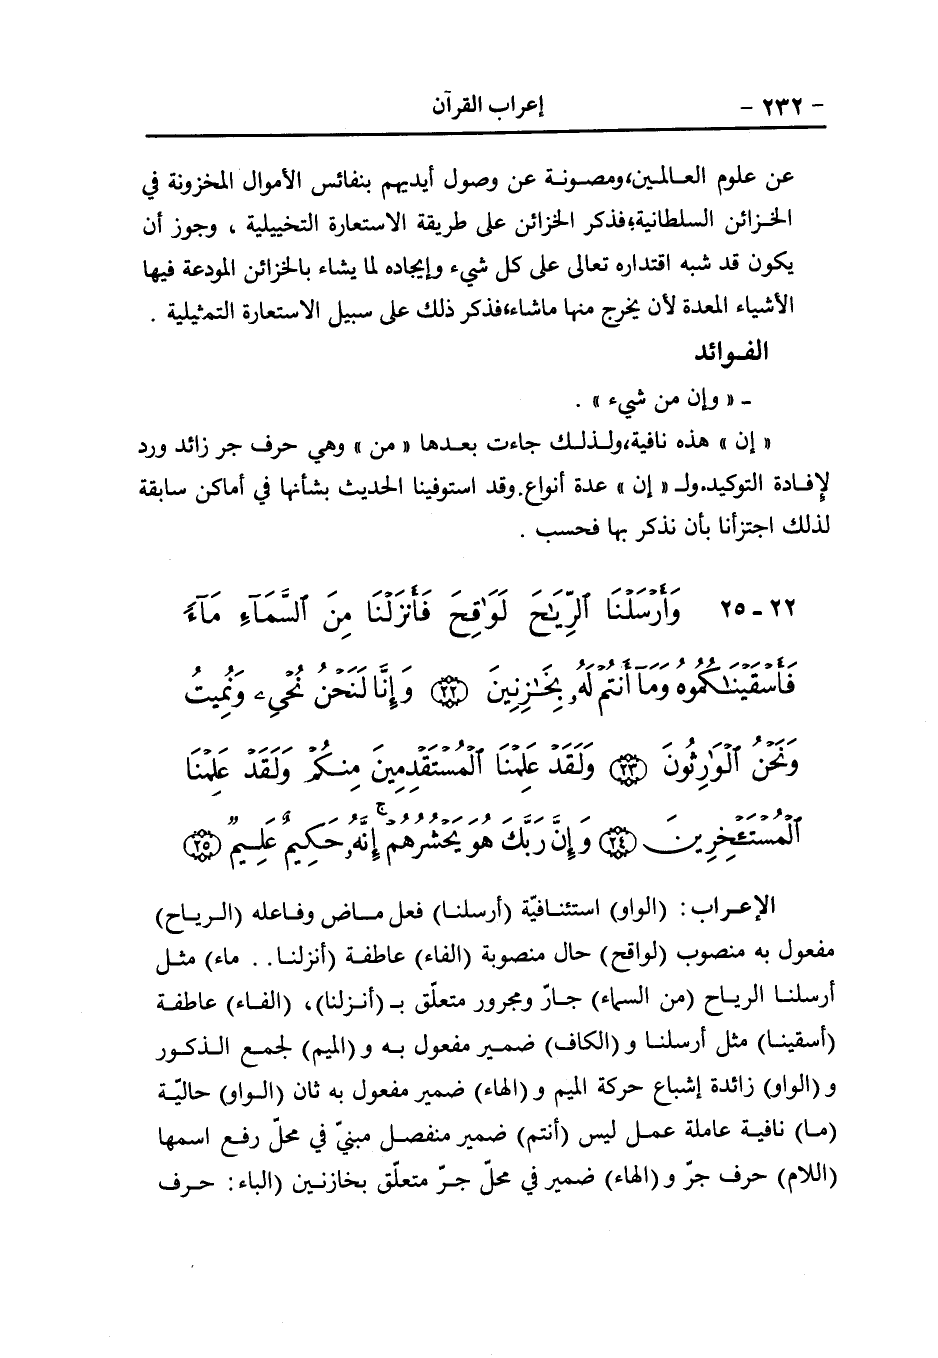 - ٢٣٢ - إعراب القرآن
عن علوم العالمين، ومصونة عن وصول أيديهم بنفائس الأموال المخزونة في
الخزائن السلطانية؛ فذكر الخزائن على طريقة الاستعارة التخييلية ، وجوز أن
يكون قد شبه اقتداره تعالى على كل شيء وإيجاده لما يشاء بالخزائن المودعة فيها
الأشياء المعدة لأن يخرج منها ماشاء، فذكر ذلك على سبيل الاستعارة التمثيلية .
الفوائد
ـ « وإن من شيء » .
« إن » هذه نافية، ولذلك جاءت بعدها « من » وهي حرف جر زائد ورد
لإفادة التوكيد. ولـ « إن » عدة أنواع. وقد استوفينا الحديث بشأنها في أماكن سابقة
لذلك اجتزأنا بأن نذكر بها فحسب .
٢٢ ـ ٢٥ وَأَرْسَلْنَا ٱلرِّيَـٰحَ لَوَٰقِحَ فَأَنزَلْنَا مِنَ ٱلسَّمَآءِ مَآءً
فَأَسْقَيْنَـٰكُمُوهُ وَمَآ أَنتُمْ لَهُۥ بِخَـٰزِنِينَ ﴿٢٢﴾ وَإِنَّا لَنَحْنُ نُحْىِۦ وَنُمِيتُ
وَنَحْنُ ٱلْوَٰرِثُونَ ﴿٢٣﴾ وَلَقَدْ عَلِمْنَا ٱلْمُسْتَقْدِمِينَ مِنكُمْ وَلَقَدْ عَلِمْنَا
ٱلْمُسْتَـْٔخِرِينَ ﴿٢٤﴾ وَإِنَّ رَبَّكَ هُوَ يَحْشُرُهُمْ ۚ إِنَّهُۥ حَكِيمٌ عَلِيمٌ ﴿٢٥﴾
الإعراب : (الواو) استئنافيّة (أرسلنا) فعل ماض وفاعله (الرياح)
مفعول به منصوب (لواقح) حال منصوبة (الفاء) عاطفة (أنزلنا. . ماء) مثل
أرسلنا الرياح (من السماء) جارّ ومجرور متعلّق بـ (أنزلنا)، (الفاء) عاطفة
(أسقينا) مثل أرسلنا و (الكاف) ضمير مفعول به و (الميم) لجمع الذكور
و (الواو) زائدة إشباع حركة الميم و (الهاء) ضمير مفعول به ثان (الواو) حاليّة
(ما) نافية عاملة عمل ليس (أنتم) ضمير منفصل مبنيّ في محلّ رفع اسمها
(اللام) حرف جرّ و (الهاء) ضمير في محلّ جرّ متعلّق بخازنين (الباء : حرف